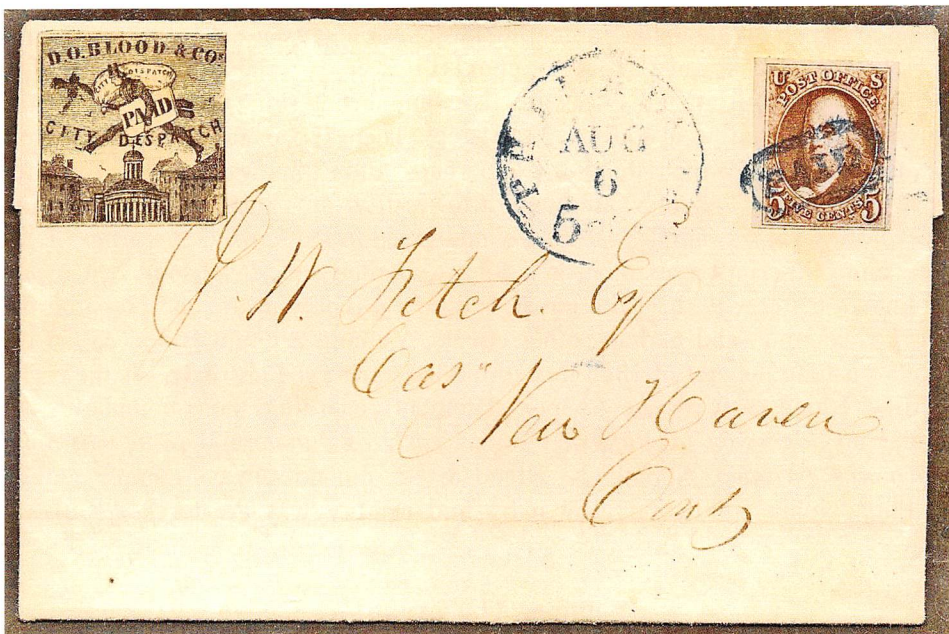 D.O.BLOOD & CO'S
CITY DESPATCH
PAID
CITY DESPATCH
PHILADA
AUG
6
5
U S
POST OFFICE
FIVE CENTS
5 5
J. W. Fitch. Esq
Cas"
New Haven
Cont